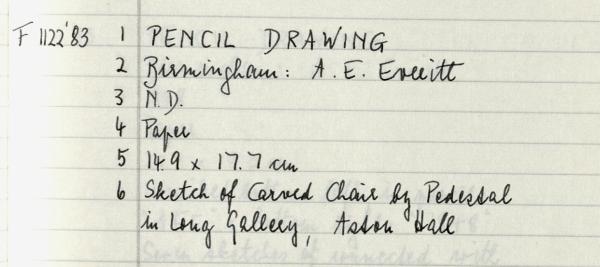 F 1122'83 1 PENCIL DRAWING
2 Birmingham: A. E. Everitt
3 N.D.
4 Paper
5 14.9 x 17.7 cm
6 Sketch of Carved Chair by Pedestal
in Long Gallery, Aston Hall